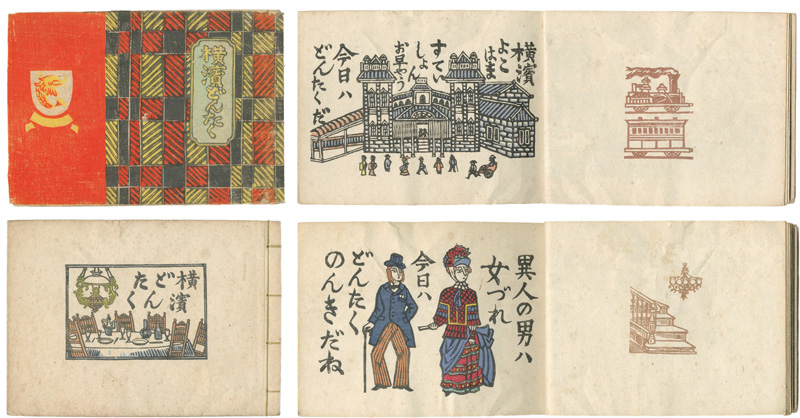 横濱どんたく
横濱
よこはま
すてい
しょん
お早やう
今日ハ
どんたくだ
横濱
どん
たく
異人の男ハ
女づれ
今日ハ
どんたく
のんきだね